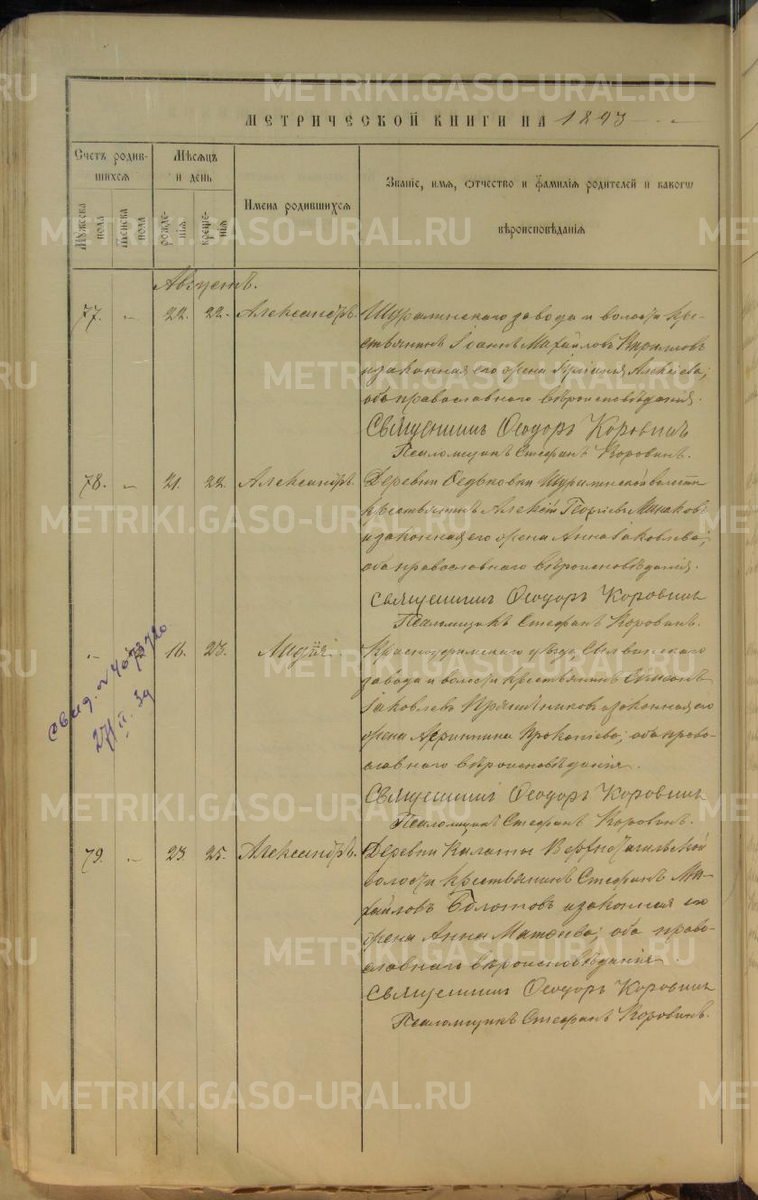 МЕТРИЧЕСКОЙ КНИГИ НА 1893
Счетъ родив-
шихся
Мѣсяцъ
и день
Имена родившихся
Званіе, имя, отчество и фамилія родителей и какого
вѣроисповѣданія
Мужеска
пола
Женска
пола
рожде-
нія
креще-
нія
Августъ.
77. 22. 22. Александръ. Шуралинскаго завода и волости кре-
стьянинъ Іоаннъ Михайловъ Кирилловъ
и законная его жена Алексѣева;
оба православнаго вѣроисповѣданія.
Священникъ Ѳеодоръ Коровинъ
Псаломщикъ Стефанъ Коровинъ.
78. 21. 22. Александръ. Деревни Федьковки Шуралинской волости
крестьянинъ Алексѣй Георгіевъ Минаковъ
и законная его жена Анна Іаковлева;
оба православнаго вѣроисповѣданія.
Священникъ Ѳеодоръ Коровинъ
Псаломщикъ Стефанъ Коровинъ.
16. 23. Лидія Красноуфимскаго уѣзда Сылвинскаго
завода и волости крестьянинъ Симеонъ
Іаковлевъ Пряничниковъ и законная его
жена Агриппина Прокопіева; оба право-
славнаго вѣроисповѣданія.
Священникъ Ѳеодоръ Коровинъ
Псаломщикъ Стефанъ Коровинъ.
свид. №
79. 23. 25. Александръ. Деревни Калаты Верхнотагильской
волости крестьянинъ Стефанъ Ми-
хайловъ Болотовъ и законная его
жена Анна Матѳеева; оба право-
славнаго вѣроисповѣданія.
Священникъ Ѳеодоръ Коровинъ
Псаломщикъ Стефанъ Коровинъ.
METRIKI.GASO-URAL.RU